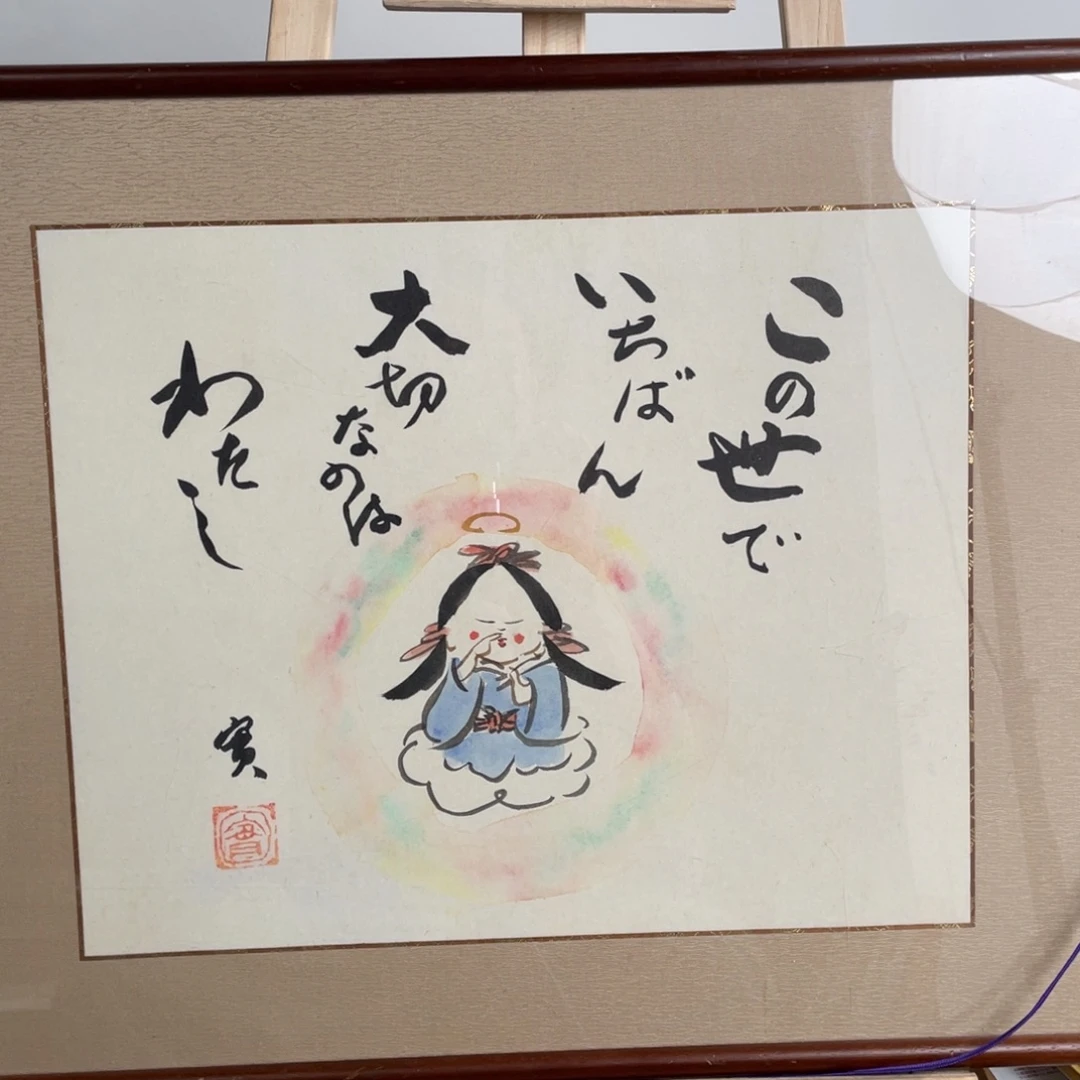 この世で
いちばん
大切なのは
わたし
實
實